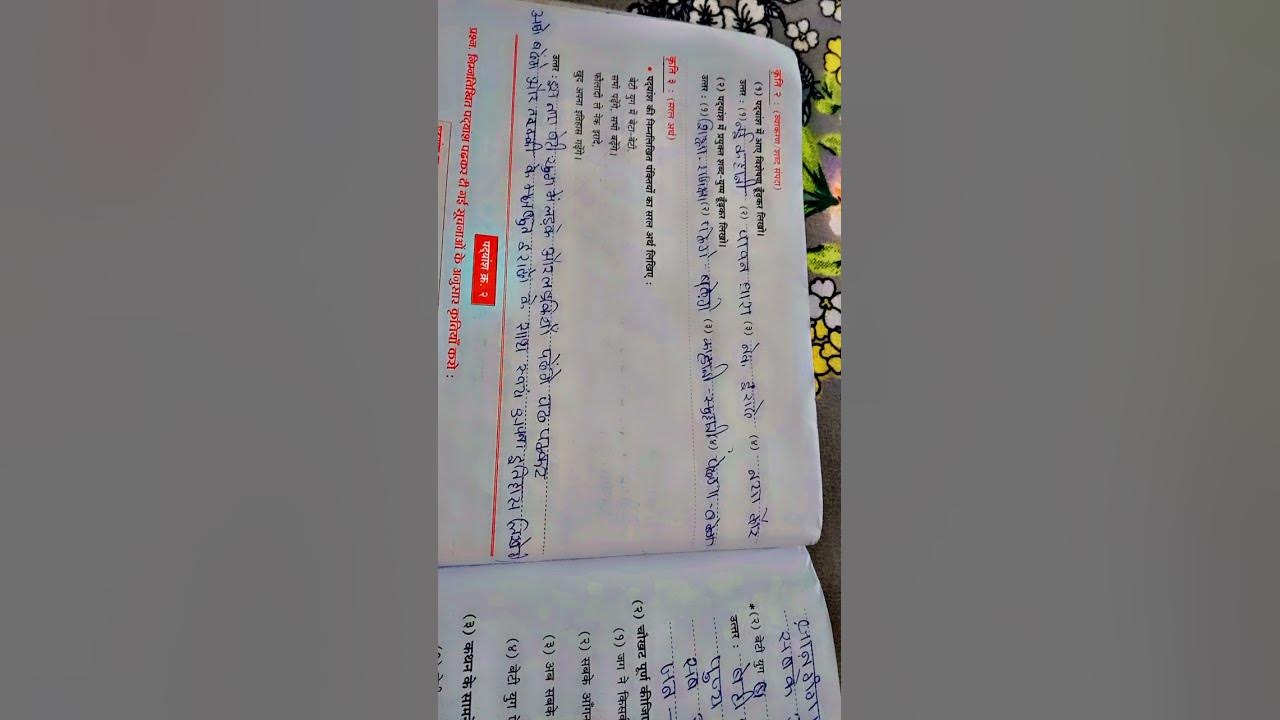 कृति २ : (व्याकरण /शब्द संपदा)
(१) पद्यांश में आए विशेषण ढूँढ़कर लिखो।
उत्तर : (१) नई कहानी (२) पावन धारा (३) नेक इरादे (४) नया दौर
(२) पद्यांश में प्रयुक्त शब्द-युग्म ढूँढ़कर लिखो।
उत्तर : (१) शिक्षा (२) पढ़ेंगे बढ़ेंगे (३) (४)
कृति ३ : (सरल अर्थ)
• पद्यांश की निम्नलिखित पंक्तियों का सरल अर्थ लिखिए :
बेटी युग में बेटा-बेटी,
सभी पढ़ेंगे, सभी बढ़ेंगे।
फौलादी ले नेक इरादे,
खुद अपना इतिहास गढ़ेंगे।
उत्तर : इस नए बेटी युग में लड़के और लड़कियाँ पढ़ेंगे पढ़कर
आगे बढ़ेंगे और के मजबूत इरादों के साथ स्वयं अपना इतिहास लिखेंगे।
पद्यांश क्र. २
प्रश्न. निम्नलिखित पद्यांश पढ़कर दी गई सूचनाओं के अनुसार कृतियाँ करो :
सबके
*(२) बेटी युग
उत्तर : बेटी
पुण्य
सब
(२) चौखट पूर्ण कीजिए
(१) जग ने किसके
(२) सबके आँगन
(३) अब सबके
(४) बेटी युग
(३) कथन के सामने